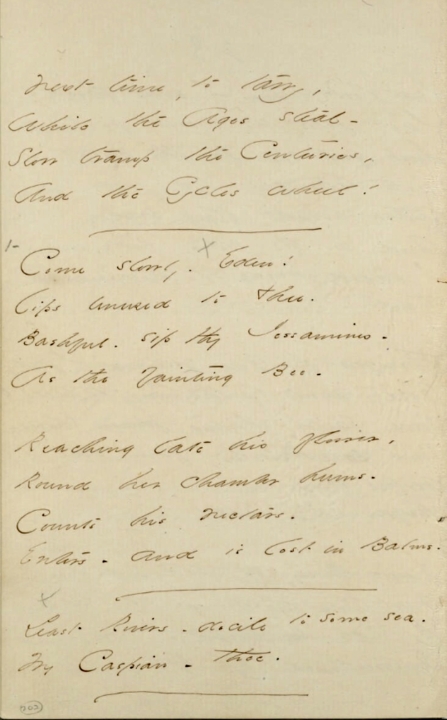 Next time, to tarry,
While the Ages steal -
Slow tramp the Centuries,
And the Cycles wheel!
1-
Come slowly - Eden!
Lips unused to Thee -
Bashful - sip thy Jessamines -
As the fainting Bee -
Reaching late his flower,
Round her chamber hums -
Counts his nectars -
Enters - and is lost in Balms -
Least Rivers - docile to some sea -
My Caspian - thee -